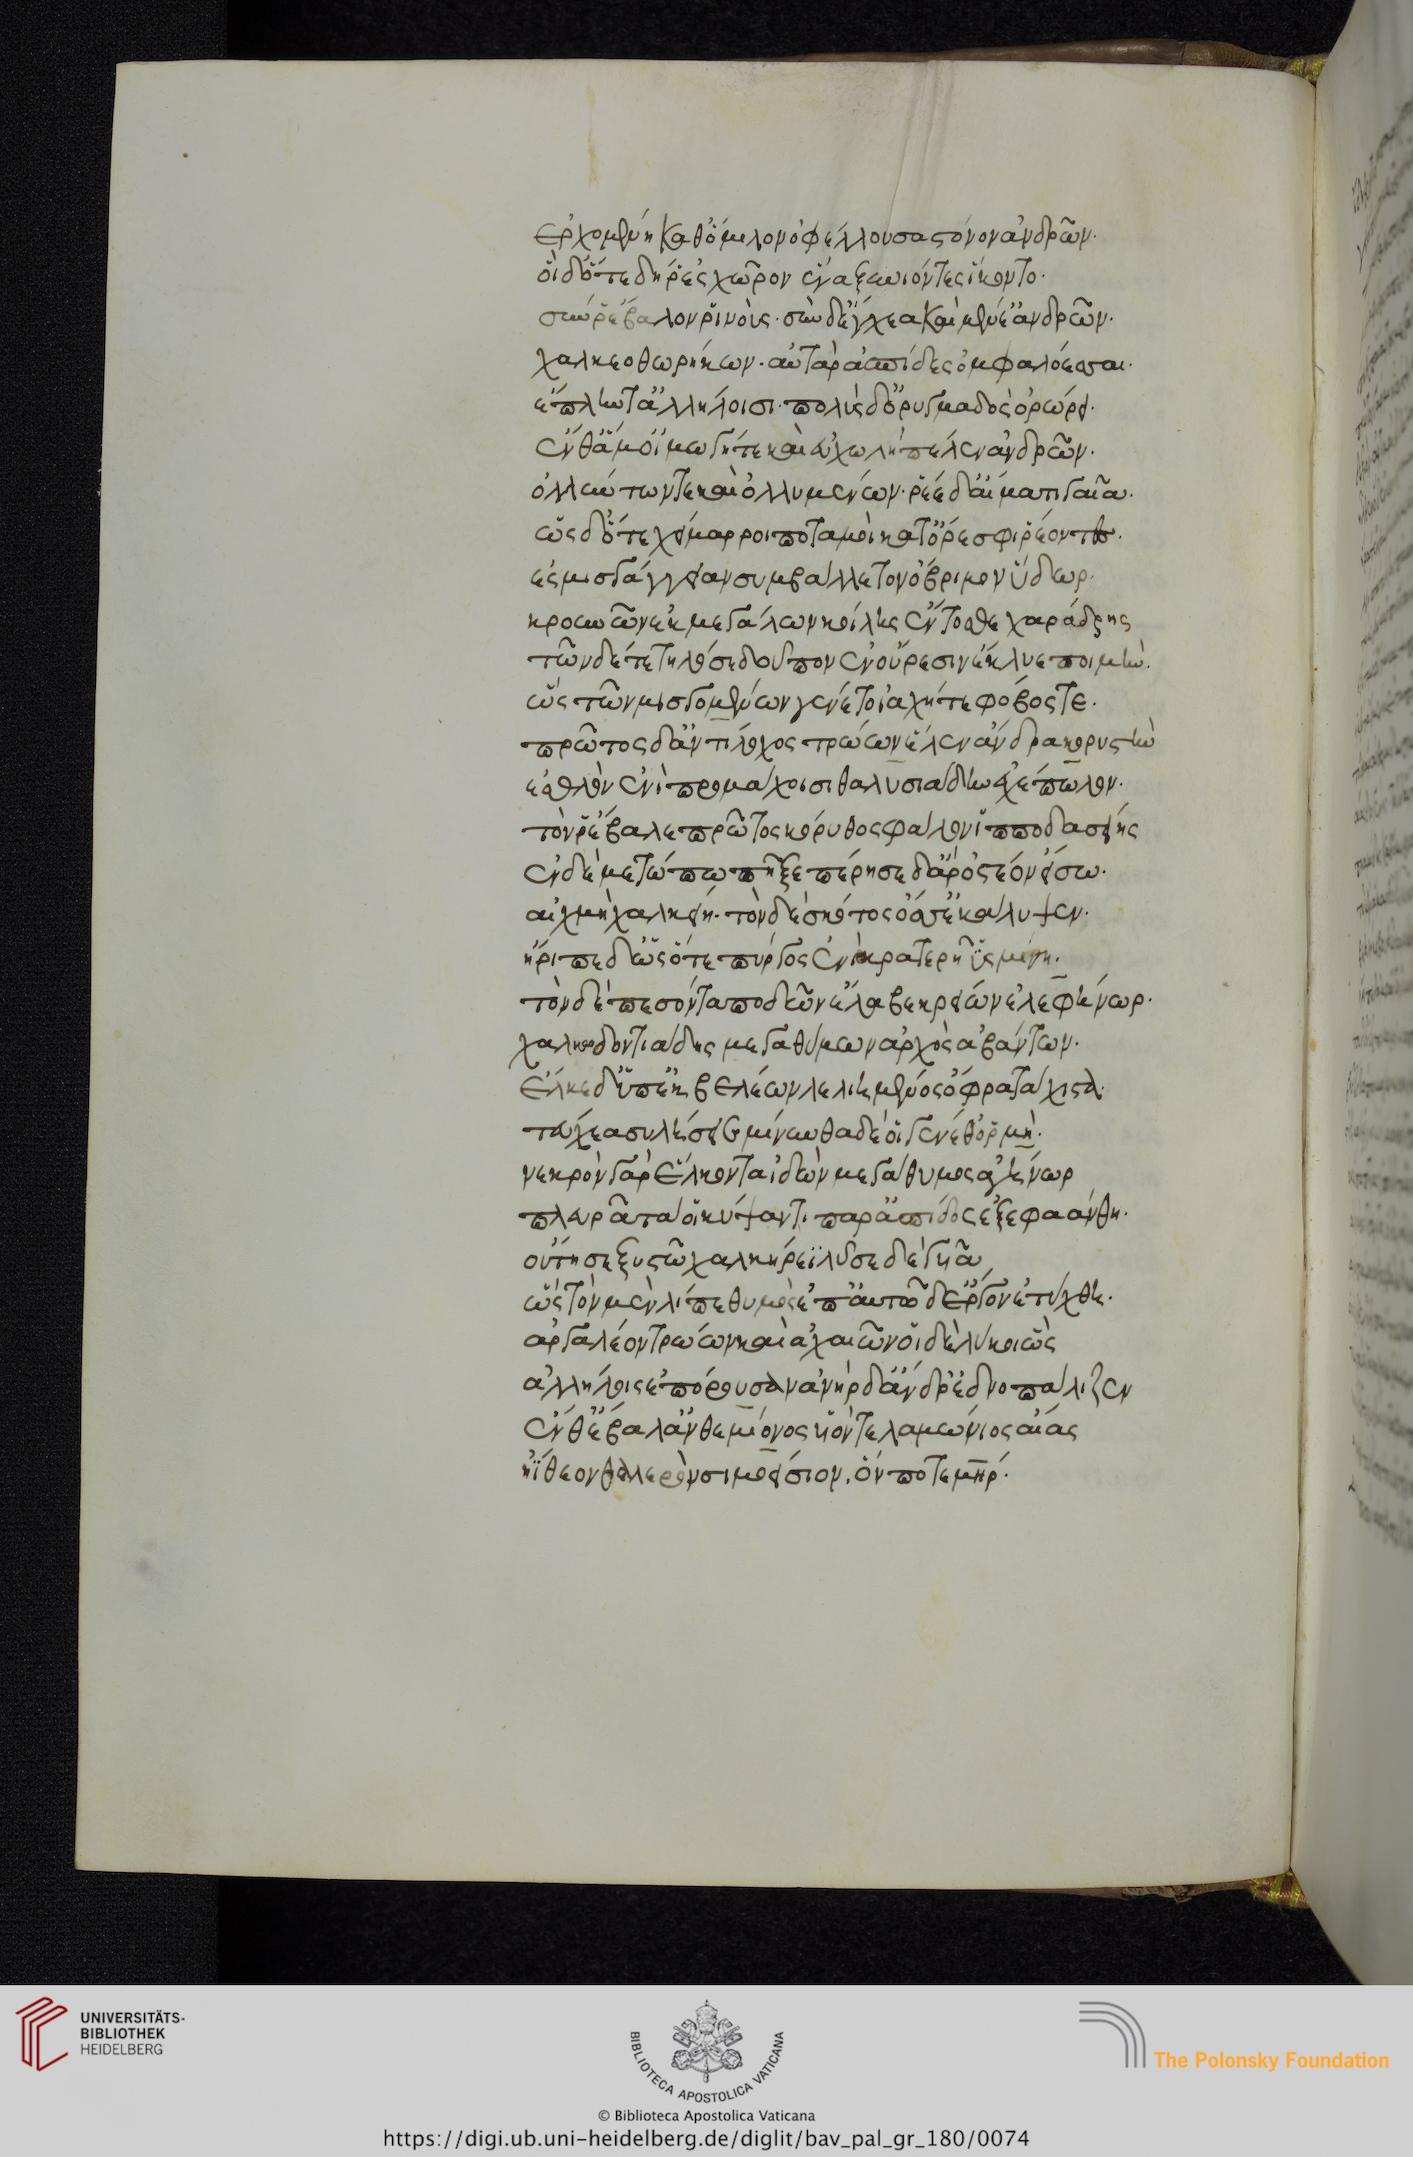 ἐρχομένη καθ' ὅμιλον ὀφέλλουσα στόνον ἀνδρῶν·
οἳ δ' ὅτε δή ῥ' ἐς χῶρον ἕνα ξυνιόντες ἵκοντο·
σύν ῥ' ἔβαλον ῥινούς· σὺν δ' ἔγχεα καὶ μένε' ἀνδρῶν·
χαλκεοθωρήκων· αὐτὰρ ἀσπίδες ὀμφαλόεσσαι·
ἔπληντ' ἀλλήλοισι· πολὺς δ' ὀρυμαγδὸς ὀρώρει·
ἔνθα δ' ἅμ' οἰμωγή τε καὶ εὐχωλὴ πέλεν ἀνδρῶν·
ὀλλύντων τε καὶ ὀλλυμένων· ῥέε δ' αἵματι γαῖα·
ὡς δ' ὅτε χείμαρροι ποταμοὶ κατ' ὄρεσφι ῥέοντες·
ἐς μισγάγγειαν συμβάλλετον ὄβριμον ὕδωρ·
κρουνῶν ἐκ μεγάλων κοίλης ἔντοσθε χαράδρης
τῶν δέ τε τηλόσε δοῦπον ἐν οὔρεσιν ἔκλυε ποιμήν·
ὣς τῶν μισγομένων γένετο ἰαχή τε φόβος τε·
πρῶτος δ' Ἀντίλοχος τρώων ἕλεν ἄνδρα κορυστήν
ἐσθλὸν ἐνὶ προμάχοισι θαλυσιάδην ἐχέπωλον·
τόν ῥ' ἔβαλε πρῶτος κόρυθος φάλον ἱπποδασείης
ἐν δὲ μετώπω πῆξε πέρησε δ' ἄρ' ὀστέον εἴσω·
αἰχμὴ χαλκείη· τὸν δὲ σκότος ὄσσε κάλυψεν·
ἤριπε δ' ὡς ὅτε πύργος ἐνὶ κρατερῇ ὑσμίνῃ·
τὸν δὲ πεσόντα ποδῶν ἔλαβε κρείων ἐλεφήνωρ·
χαλκωδοντιάδης μεγαθύμων ἀρχὸς ἀβάντων·
ἕλκε δ' ὑπ' ἐκ βελέων λελιημένος ὄφρα τάχιστα·
τεύχεα συλήσειε μίνυνθα δέ οἱ γένεθ' ὁρμή·
νεκρὸν γὰρ ἕλκοντα ἰδὼν μεγάθυμος ἀγήνωρ
πλευρὰ τά οἱ κύψαντι παρ' ἀσπίδος ἐξεφαάνθη·
οὔτησε ξυστῷ χαλκήρεϊ λῦσε δὲ γυῖα
ὣς τὸν μὲν λίπε θυμὸς ἐπ' αὐτῷ δ' ἔργον ἐτύχθη·
ἀργαλέον τρώων καὶ ἀχαιῶν οἳ δὲ λύκοι ὣς
ἀλλήλοις ἐπόρουσαν ἀνὴρ δ' ἄνδρ' ἐδνοπάλιζεν
ἔνθ' ἔβαλ' ἀνθεμίονος υἱὸν τελαμώνιος αἴας
ἠΐθεον θαλερὸν σιμοείσιον, ὅν ποτε μηρ·
UNIVERSITÄTS-
BIBLIOTHEK
HEIDELBERG
BIBLIOTECA APOSTOLICA VATICANA
The Polonsky Foundation
© Biblioteca Apostolica Vaticana
https://digi.ub.uni-heidelberg.de/diglit/bav_pal_gr_180/0074